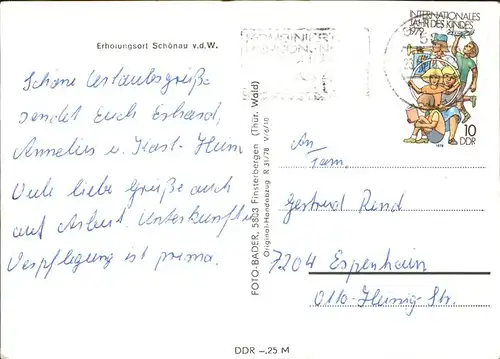 Erholungsort Schönau v.d.W.
Schöne Urlaubsgrüße
sendet Euch Erhard,
Annelies u. Karl-Heinz
Viele liebe Grüße auch
auf Arbeit. Unterkunft u.
Verpflegung ist prima.
FOTO-BADER, 5803 Finsterbergen (Thür. Wald)
Original-Handabzug R 31/78 V/6/10
INTERNATIONALES
JAHR DES KINDES
1979
10
DDR
An
Fam.
Gertrud Rind
7204 Espenhain
Otto-Heinig-Str.
DDR –,25 M